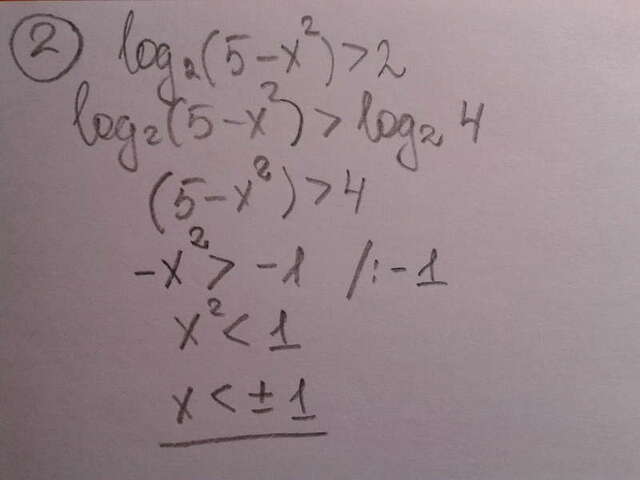 ② log₂(5-x²)>2
log₂(5-x²)>log₂4
(5-x²)>4
-x²>-1 /:-1
x²<1
x<±1